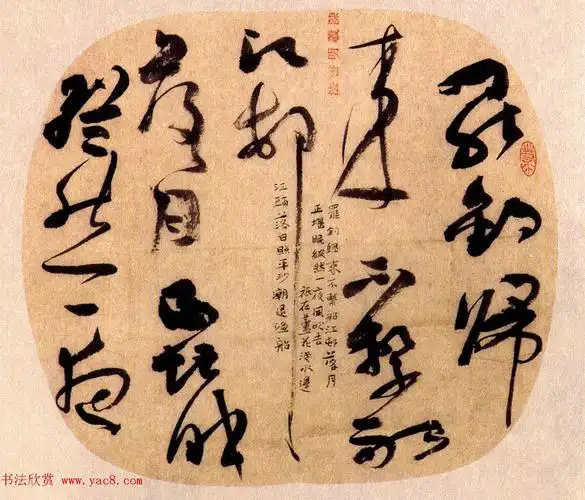 罷釣歸
来不繫船
江邨
落月正堪眠
縱然一夜
罷釣歸來不繫船江邨落月
正堪眠縱然一夜風吹去
祇在蘆花淺水邊
江頭落日照平沙潮退漁船
书法欣赏 www.yac8.com